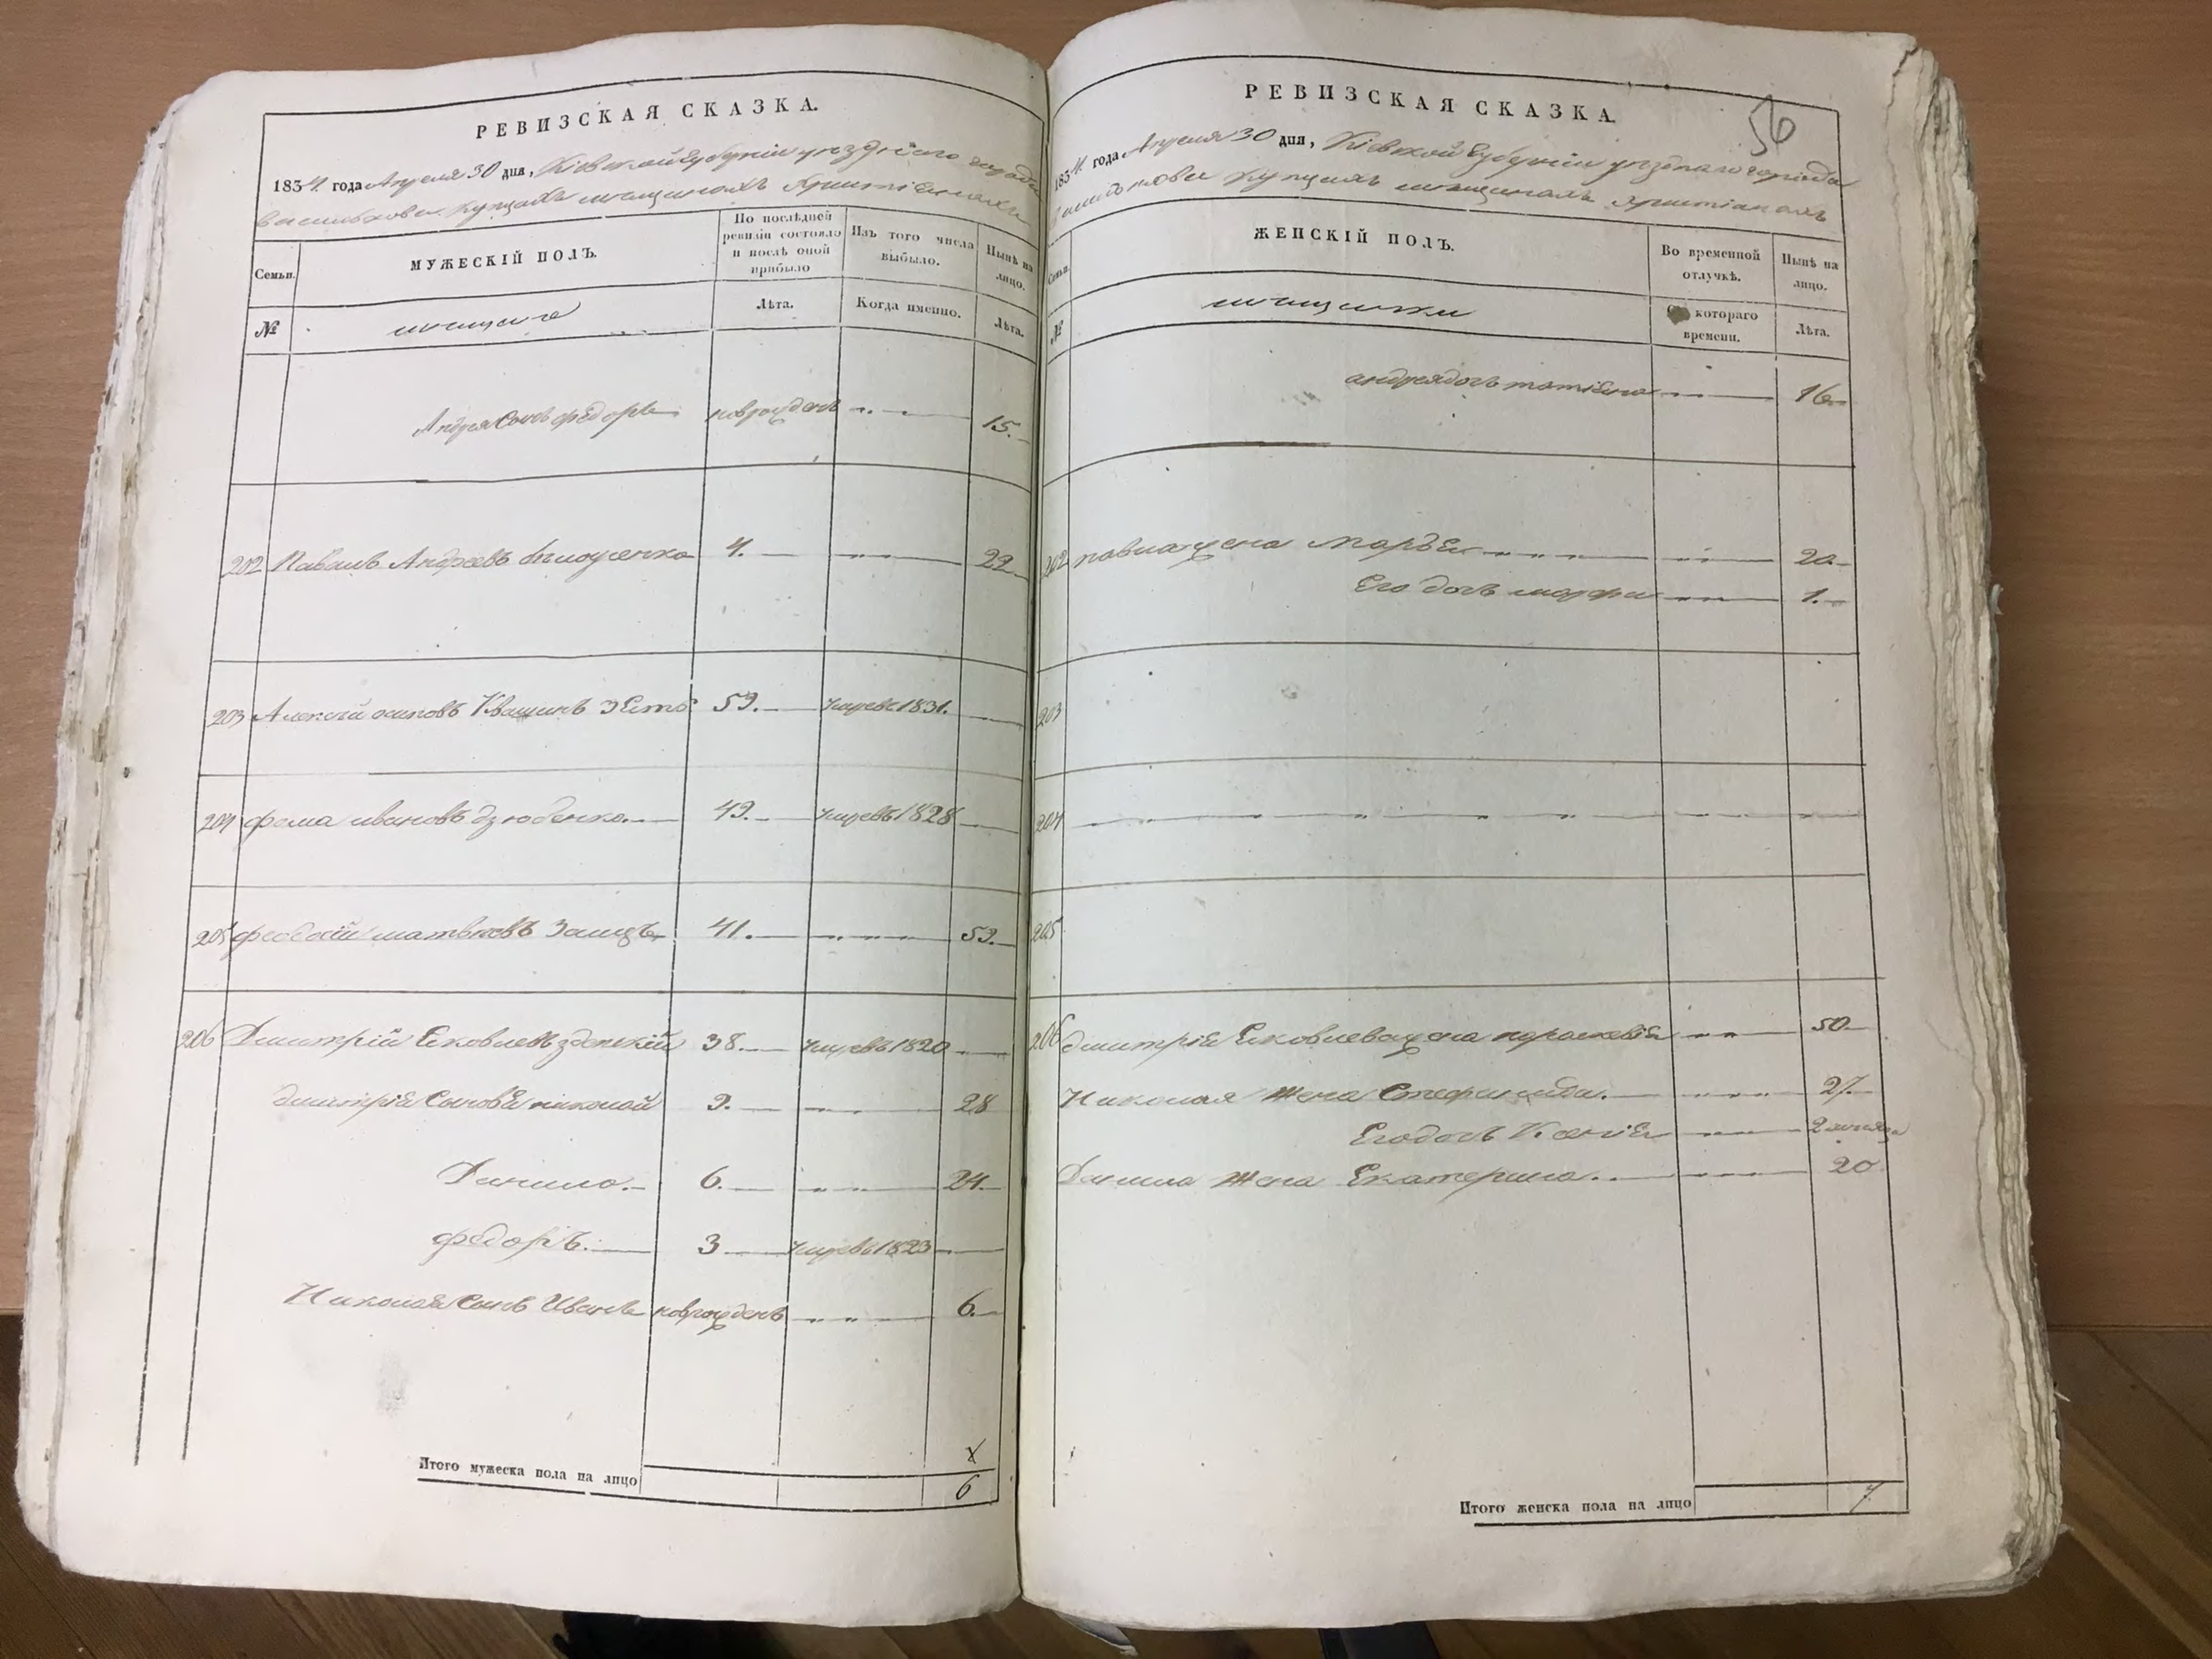 РЕВИЗСКАЯ СКАЗКА.
1834. года Апреля 30 дня, Кіевской Губерніи уезднаго города
василькова купцахъ мещанахъ христіанахъ
Семьи.
МУЖЕСКІЙ ПОЛЪ.
По последней ревизіи состояло и после оной прибыло
Изъ того числа выбыло.
Ныне на лицо.
№
мещане
Лета.
Когда именно.
Лета.
Андрея Сынъ федоръ новрожденъ 15.
202 Павелъ Андреевъ 4. 22
203 Алексей осиповъ 59. умре в 1831.
204 фома ивановъ дзюбенко. 49. умре въ 1828
205 феодосій матвеевъ Заецъ 41. 53.
206 Дмитрій Яковлевъ 38. умре въ 1820
дмитрія Сыновья николай 9. 28
Данило. 6. 24.
федоръ. 3 умре въ 1823
Николая Сынъ Иванъ новрожденъ 6.
Итого мужеска пола на лицо
6
РЕВИЗСКАЯ СКАЗКА.
56
1834. года Апреля 30 дня, Кіевской Губерніи уезднаго города
василькова купцахъ мещанахъ христіанахъ
Семьи.
ЖЕНСКІЙ ПОЛЪ.
Во временной отлучке.
Ныне на лицо.
№
мещанки
Съ котораго времени.
Лета.
андрея дочь татіяна 16
202 павла жена Марья 20.
Его дочь марфа 1.
203
204
205
206 дмитрія Яковлева жена параскевія 50
Николая Жена Стефанида. 27.
Его дочь Ксенія 2 месяца
Данила Жена Екатерина. 20
Итого женска пола на лицо
7